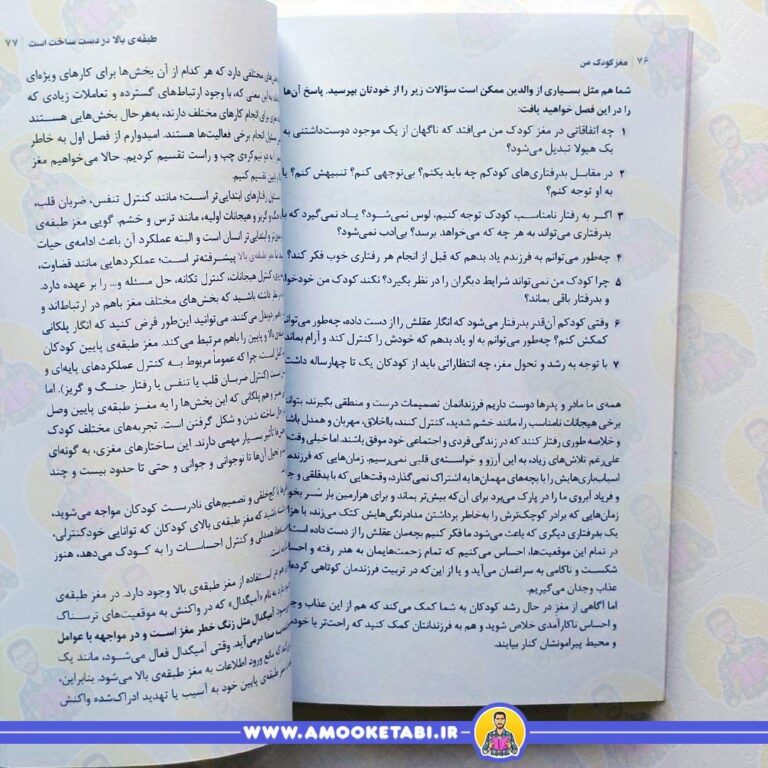 ۷۶ | مغز کودک من
شما هم مثل بسیاری از والدین ممکن است سؤالات زیر را از خودتان بپرسید. پاسخ آن‌ها
را در این فصل خواهید یافت:
۱ چه اتفاقاتی در مغز کودک من می‌افتد که ناگهان از یک موجود دوست‌داشتنی به
یک هیولا تبدیل می‌شود؟
۲ در مقابل بدرفتاری‌های کودکم چه باید بکنم؟ بی‌توجهی کنم؟ تنبیهش کنم؟ یا
به او توجه کنم؟
۳ اگر به رفتار نامناسب کودک توجه کنیم، لوس نمی‌شود؟ یاد نمی‌گیرد که با
بدرفتاری می‌تواند به هر چه که می‌خواهد برسد؟ بی‌ادب نمی‌شود؟
۴ چه‌طور می‌توانم به فرزندم یاد بدهم که قبل از انجام هر رفتاری خوب فکر کند؟
۵ چرا کودک من نمی‌تواند شرایط دیگران را در نظر بگیرد؟ نکند کودک من خودخواه
و بدرفتار باقی بماند؟
۶ وقتی کودکم آن‌قدر بدرفتار می‌شود که انگار عقلش را از دست داده، چه‌طور می‌توانم
کمکش کنم؟ چه‌طور می‌توانم به او یاد بدهم که خودش را کنترل کند و آرام بماند
۷ با توجه به رشد و تحول مغز، چه انتظاراتی باید از کودکان یک تا چهارساله داشت
همه‌ی ما مادر و پدرها دوست داریم فرزندانمان تصمیمات درست و منطقی بگیرند، بتوانند
برخی هیجانات نامناسب را، مانند خشم شدید، کنترل کنند، بااخلاق، مهربان و همدل باشند
و خلاصه طوری رفتار کنند که در زندگی فردی و اجتماعی خود موفق باشند. اما خیلی وقت
علی‌رغم تلاش‌های زیاد، به این آرزو و خواسته‌ی قلبی نمی‌رسیم. زمان‌هایی که فرزندم
اسباب‌بازی‌هایش را با بچه‌های مهمان‌ها به اشتراک نمی‌گذارد، وقت‌هایی که با بدقلقی و
و فریاد آبروی ما را در پارک می‌برد برای آن‌که بیش‌تر بماند و برای هزارمین بار سُر بخورد
زمان‌هایی که برادر کوچک‌ترش را به‌خاطر برداشتن مدادرنگی‌هایش کتک می‌زند، یا هزار
یک بدرفتاری دیگری که باعث می‌شود ما فکر کنیم بچه‌مان عقلش را از دست داده است!
در تمام این موقعیت‌ها، احساس می‌کنیم که تمام زحمت‌هایمان به هدر رفته و احساس
شکست و ناکامی به سراغمان می‌آید و یا از این‌که در تربیت فرزندمان کوتاهی کرده‌ایم
عذاب وجدان می‌گیریم.
اما آگاهی از مغز در حال رشد کودکان به شما کمک می‌کند که هم از این عذاب
و احساس ناکارآمدی خلاص شوید و هم به فرزندانتان کمک کنید که راحت‌تر با
و محیط پیرامونشان کنار بیایند.
طبقه‌ی بالا در دست ساخت است | ۷۷
مختلفی دارد که هر کدام از آن بخش‌ها برای کارهای ویژه‌ای
به این معنی که، با وجود ارتباط‌های گسترده و تعاملات زیادی که
برای انجام کارهای مختلف دارند، به‌هرحال بخش‌هایی هستند
مسئول انجام برخی فعالیت‌ها هستند. امیدوارم از فصل اول به خاطر
به دو نیم‌کره‌ی چپ و راست تقسیم کردیم. حالا می‌خواهیم مغز
پایین تقسیم کنیم.
مسئول رفتارهای ابتدایی‌تر است؛ مانند کنترل تنفس، ضربان قلب،
جنگ و گریز و هیجانات اولیه، مانند ترس و خشم. گویی مغز طبقه‌ی
و ابتدایی‌تر انسان است و البته عملکرد آن باعث ادامه‌ی حیات
مغز طبقه‌ی بالا پیشرفته‌تر است؛ عملکردهایی مانند قضاوت،
کنترل هیجانات، کنترل تکانه، حل مسئله و... را بر عهده دارد.
داشته باشید که بخش‌های مختلف مغز باهم در ارتباط‌اند و
می‌کنند. می‌توانید این‌طور فرض کنید که انگار پلکانی
بالا و پایین را باهم مرتبط می‌کند. مغز طبقه‌ی پایین کودکان
است، چرا که عموماً مربوط به کنترل عملکردهای پایه‌ای و
است (کنترل ضربان قلب یا تنفس یا رفتار جنگ و گریز). اما
و هم پلکانی که این بخش‌ها را به مغز طبقه‌ی پایین وصل
حال ساخته شدن و شکل گرفتن است. تجربه‌های مختلف کودک
تأثیر بسیار مهمی دارند. این ساختارهای مغزی، به گونه‌ای
تحول آن‌ها تا نوجوانی و جوانی و حتی تا حدود بیست و چند
کج‌خلقی و تصمیم‌های نادرست کودکان مواجه می‌شوید،
باشید که مغز طبقه‌ی بالای کودکان که توانایی خودکنترلی،
همدلی و کنترل احساسات را به کودک می‌دهد، هنوز
است.
در استفاده از مغز طبقه‌ی بالا وجود دارد. در مغز طبقه‌ی
به نام «آمیگدال» که در واکنش به موقعیت‌های ترسناک
آمیگدال مثل زنگ خطر مغز است و در مواجهه با عوامل
صدا درمی‌آید. وقتی آمیگدال فعال می‌شود، مانند یک
که مانع ورود اطلاعات به مغز طبقه‌ی بالا می‌شود. بنابراین،
مغز طبقه‌ی پایین خود به آسیب یا تهدید ادراک‌شده واکنش
WWW.AMOOKETABI.IR